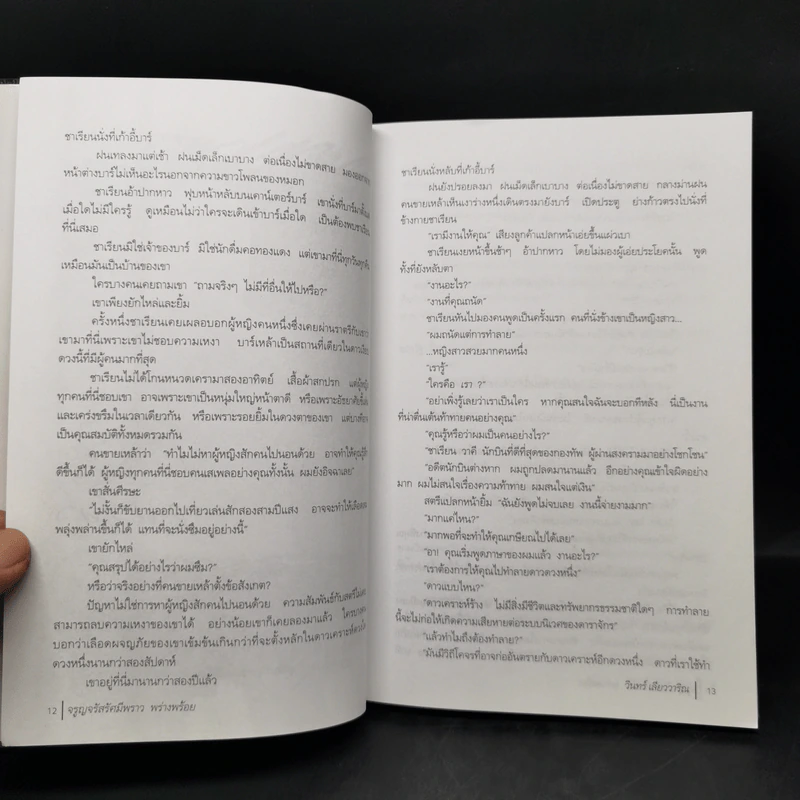 ชาเรียนนั่งที่เก้าอี้บาร์
ฝนเทลงมาแต่เช้า ฝนเม็ดเล็กเบาบาง ต่อเนื่องไม่ขาดสาย
หน้าต่างบาร์ไม่เห็นอะไรนอกจากความขาวโพลนของหมอก
ชาเรียนอ้าปากหาว ฟุบหน้าหลับบนเคาน์เตอร์บาร์ เขานั่งที่บาร์มา
เมื่อใดไม่มีใครรู้ ดูเหมือนไม่ว่าใครจะเดินเข้าบาร์เมื่อใด เป็นต้องพบชาเรียน
ที่นี่เสมอ
ชาเรียนมิใช่เจ้าของบาร์ มิใช่นักดื่มคอทองแดง แต่เขามาที่นี่ทุกวันทุกคืน
เหมือนมันเป็นบ้านของเขา
ใครบางคนเคยถามเขา “ถามจริงๆ ไม่มีที่อื่นให้ไปหรือ?”
เขาเพียงยักไหล่และยิ้ม
ครั้งหนึ่งชาเรียนเคยเผลอบอกผู้หญิงคนหนึ่งซึ่งเคยผ่านราตรีกับเขาว่า
เขามาที่นี่เพราะเขาไม่ชอบความเหงา บาร์เหล้าเป็นสถานที่เดียวในดาวเมือง
ดวงนี้ที่มีผู้คนมากที่สุด
ชาเรียนไม่ได้โกนหนวดเครามาสองอาทิตย์ เสื้อผ้าสกปรก แต่ผู้หญิง
ทุกคนที่นี่ชอบเขา อาจเพราะเขาเป็นหนุ่มใหญ่หน้าตาดี หรือเพราะอัธยาศัย
และเคร่งขรึมในเวลาเดียวกัน หรือเพราะรอยยิ้มในดวงตาของเขา แต่บางที
เป็นคุณสมบัติทั้งหมดรวมกัน
คนขายเหล้าว่า “ทำไมไม่หาผู้หญิงสักคนไปนอนด้วย อาจทำให้คุณรู้สึก
ดีขึ้นก็ได้ ผู้หญิงทุกคนที่นี่ชอบคนเสเพลอย่างคุณทั้งนั้น ผมยังอิจฉาเลย”
เขาสั่นศีรษะ
“ไม่งั้นก็ขับยานออกไปเที่ยวเล่นสักสองสามปีแสง อาจจะทำให้เลือด
พลุ่งพล่านขึ้นก็ได้ แทนที่จะนั่งซึมอยู่อย่างนี้”
เขายักไหล่
“คุณสรุปได้อย่างไรว่าผมซึม?”
หรือว่าจริงอย่างที่คนขายเหล้าตั้งข้อสังเกต?
ปัญหาไม่ใช่การหาผู้หญิงสักคนไปนอนด้วย ความสัมพันธ์กับสตรี
สามารถลบความเหงาของเขาได้ อย่างน้อยเขาก็เคยลองมาแล้ว ใครบางคน
บอกว่าเลือดผจญภัยของเขาเข้มข้นเกินกว่าที่จะตั้งหลักในดาวเคราะห์
ดวงหนึ่งนานกว่าสองสัปดาห์
เขาอยู่ที่นี่มานานกว่าสองปีแล้ว
12 จรูญจรัสรัศมีพราว พร่างพร้อย
ชาเรียนนั่งหลับที่เก้าอี้บาร์
ฝนยังปรอยลงมา ฝนเม็ดเล็กเบาบาง ต่อเนื่องไม่ขาดสาย กลางม่านฝน
คนขายเหล้าเห็นเงาร่างหนึ่งเดินตรงมายังบาร์ เปิดประตู ย่างก้าวตรงไปนั่งที่
ข้างกายชาเรียน
“เรามีงานให้คุณ” เสียงลูกค้าแปลกหน้าเอ่ยขึ้นแผ่วเบา
ชาเรียนเงยหน้าขึ้นช้าๆ อ้าปากหาว โดยไม่มองผู้เอ่ยประโยคนั้น พูด
ทั้งที่ยังหลับตา
“งานอะไร?”
“งานที่คุณถนัด”
ชาเรียนหันไปมองคนพูดเป็นครั้งแรก คนที่นั่งข้างเขาเป็นหญิงสาว...
“ผมถนัดแต่การทำลาย”
...หญิงสาวสวยมากคนหนึ่ง
“เรารู้”
“ใครคือ เรา ?”
“อย่าเพิ่งรู้เลยว่าเราเป็นใคร หากคุณสนใจฉันจะบอกทีหลัง นี่เป็นงาน
ที่น่าตื่นเต้นท้าทายคนอย่างคุณ”
“คุณรู้หรือว่าผมเป็นคนอย่างไร?”
“ชาเรียน วาคี นักบินที่ดีที่สุดของกองทัพ ผู้ผ่านสงครามมาอย่างโชกโชน”
“อดีตนักบินต่างหาก ผมถูกปลดมานานแล้ว อีกอย่างคุณเข้าใจผิดอย่าง
มาก ผมไม่สนใจเรื่องความท้าทาย ผมสนใจแต่เงิน”
สตรีแปลกหน้ายิ้ม “ฉันยังพูดไม่จบเลย งานนี้จ่ายงามมาก”
“มากแค่ไหน?”
“มากพอที่จะทำให้คุณเกษียณไปได้เลย”
“อา! คุณเริ่มพูดภาษาของผมแล้ว งานอะไร?”
“เราต้องการให้คุณไปทำลายดาวดวงหนึ่ง”
“ดาวแบบไหน?”
“ดาวเคราะห์ร้าง ไม่มีสิ่งมีชีวิตและทรัพยากรธรรมชาติใดๆ การทำลาย
นี้จะไม่ก่อให้เกิดความเสียหายต่อระบบนิเวศของดาราจักร”
“แล้วทำไมถึงต้องทำลาย?”
“มันมีวิถีโคจรที่อาจก่ออันตรายกับดาวเคราะห์อีกดวงหนึ่ง ดาวที่เราใช้ทำ
วินทร์ เลียววาริณ 13